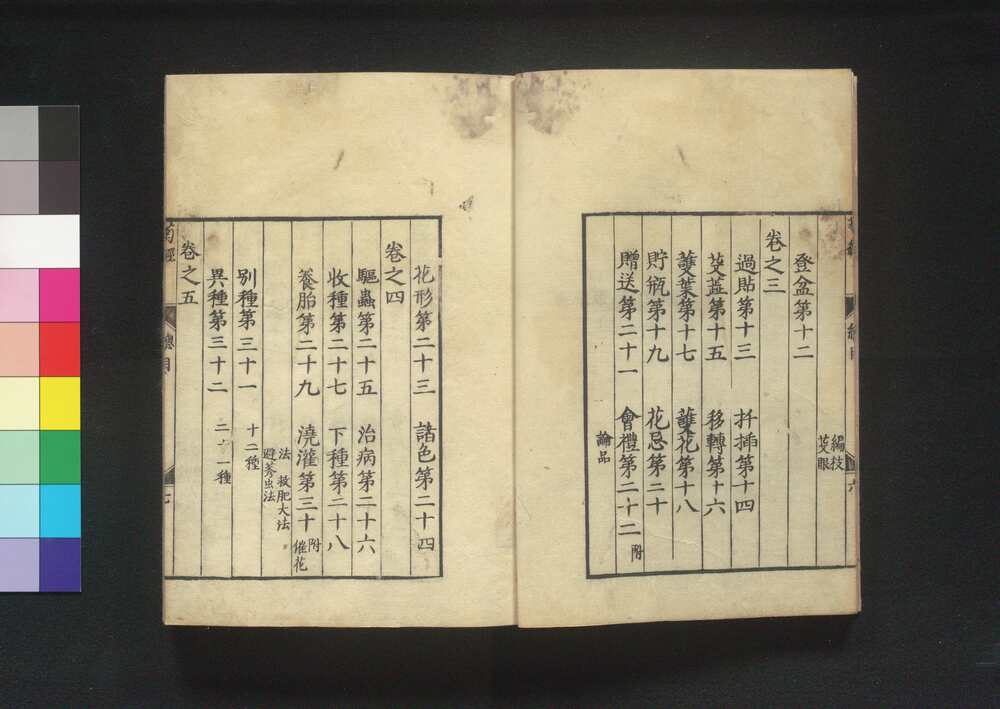 登盆第十二 編枝 芟眼
卷之三
過貼第十三 扦揷第十四
芟蕋第十五 移轉第十六
護葉第十七 護花第十八
貯瓶第十九 花忌第二十
贈送第二十一 會禮第二十二 附
論品
花形第二十三 諸色第二十四
卷之四
驅蟲第二十五 治病第二十六
收種第二十七 下種第二十八
養胎第二十九 澆灌第三十 附 催花
法 救肥大法
避莠虫法
別種第三十一 十二種
異種第三十二 二十一種
卷之五
菊經 總目 七
總目 六